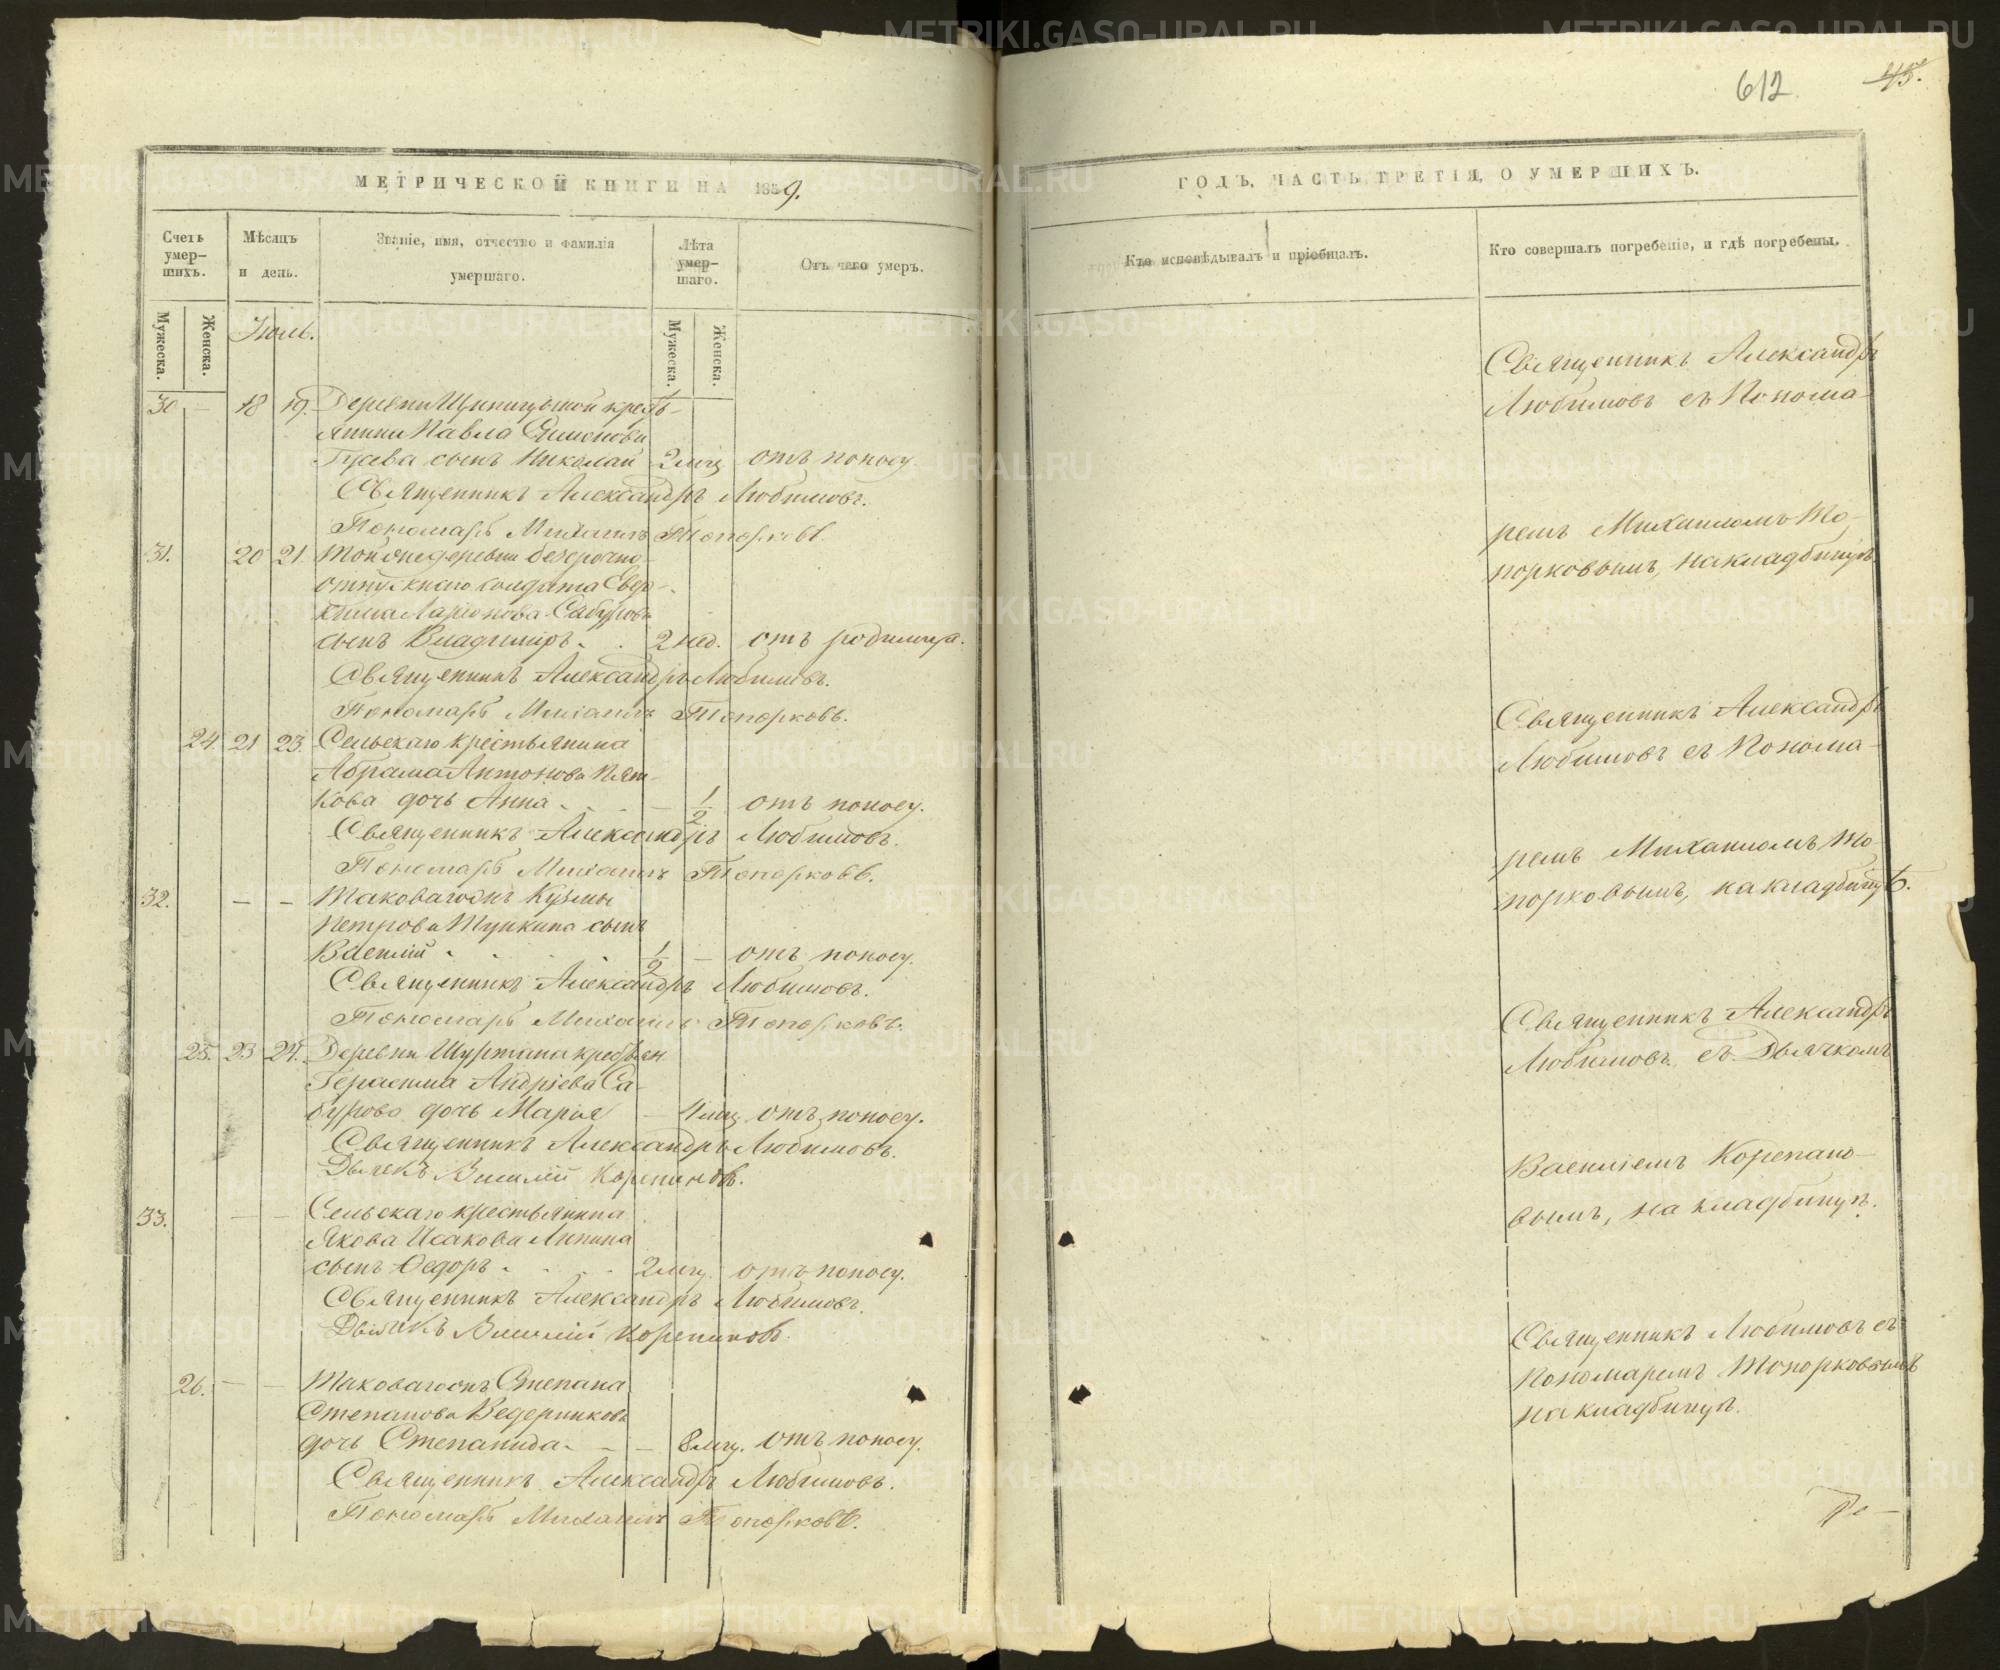 612
45.
МЕТРИЧЕСКОЙ КНИГИ НА 1859.
Счетъ умер-шихъ.
Мѣсяцъ и день.
Званіе, имя, отчество и фамилія умершаго.
Лѣта умер-шаго.
Отъ чего умеръ.
Мужеска.
Женска.
Мужеска.
Женска.
Іюль.
30 — 18 19. Деревни крестъ-
янина Павла Симонова
Гусева сынъ Николай 2 мѣц. отъ поносу.
Священникъ Александръ Любимовъ.
Пономарь Михаилъ Топорковъ.
31. 20 21. Той же деревни безсрочно-
отпускнаго солдата
Ларіонова Сабурова
сынъ Владиміръ. 2 нед. отъ родимца.
Священникъ Александръ Любимовъ.
Пономарь Михаилъ Топорковъ.
24. 21 23. Сельскаго крестьянина
Абрама Антонова Пят-
кова дочь Анна — 1/2 отъ поносу.
Священникъ Александръ Любимовъ.
Пономарь Михаилъ Топорковъ.
32. — — Таковагожъ Кузмы
Петрова Тупкина сынъ
Василій 1/2 — отъ поносу.
Священникъ Александръ Любимовъ.
Пономарь Михаилъ Топорковъ.
25. 23 24. Деревни Шуртана крестьян
Герасима Андріева Са-
бурова дочь Марія — 4 мѣц. отъ поносу.
Священникъ Александръ Любимовъ.
Дьячекъ Василій Корепановъ.
33. — — Сельскаго крестьянина
Якова Исакова Липина
сынъ Ѳедоръ 2 мѣц. отъ поносу.
Священникъ Александръ Любимовъ.
Дьячекъ Василій Корепановъ.
26. — — Таковагожъ Степана
Степанова Ведерникова
дочь Степанида — — 8 мѣц. отъ поносу.
Священникъ Александръ Любимовъ.
Пономарь Михаилъ Топорковъ.
ГОДЪ, ЧАСТЬ ТРЕТІЯ, О УМЕРШИХЪ.
Кто исповѣдывалъ и пріобщалъ.
Кто совершалъ погребеніе, и гдѣ погребены.
Священникъ Александръ
Любимовъ съ Понома-
ремъ Михаиломъ То-
порковымъ, на кладбищѣ.
Священникъ Александръ
Любимовъ съ Понома-
ремъ Михаиломъ То-
порковымъ, на кладбищѣ.
Священникъ Александръ
Любимовъ съ Дьячкомъ
Василіемъ Корепано-
вымъ, на кладбищѣ.
Священникъ Любимовъ съ
Пономаремъ Топорковымъ
на кладбищѣ.
METRIKI.GASO-URAL.RU